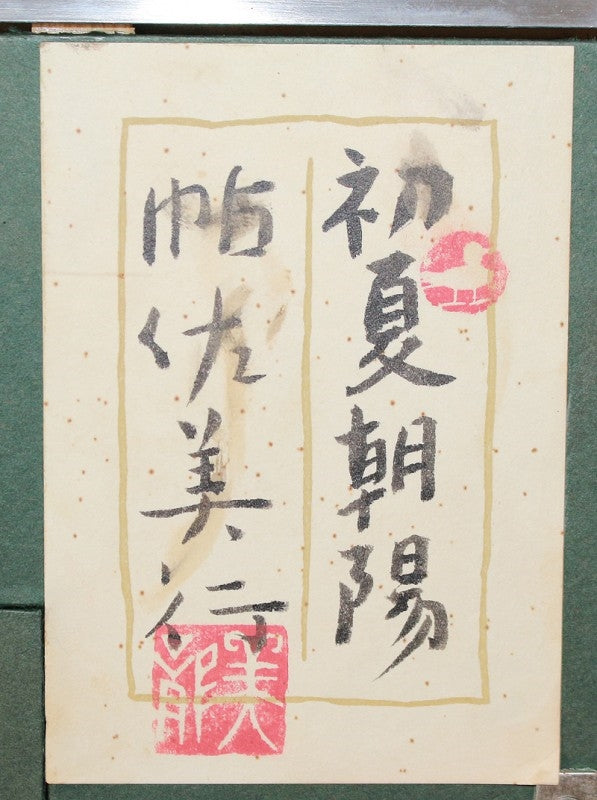 初夏朝陽
帖佐美行
美